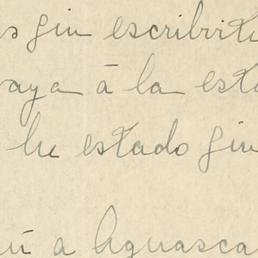 s sin escribirte
vaya á la esta
he estado sin
ú a Aguasca